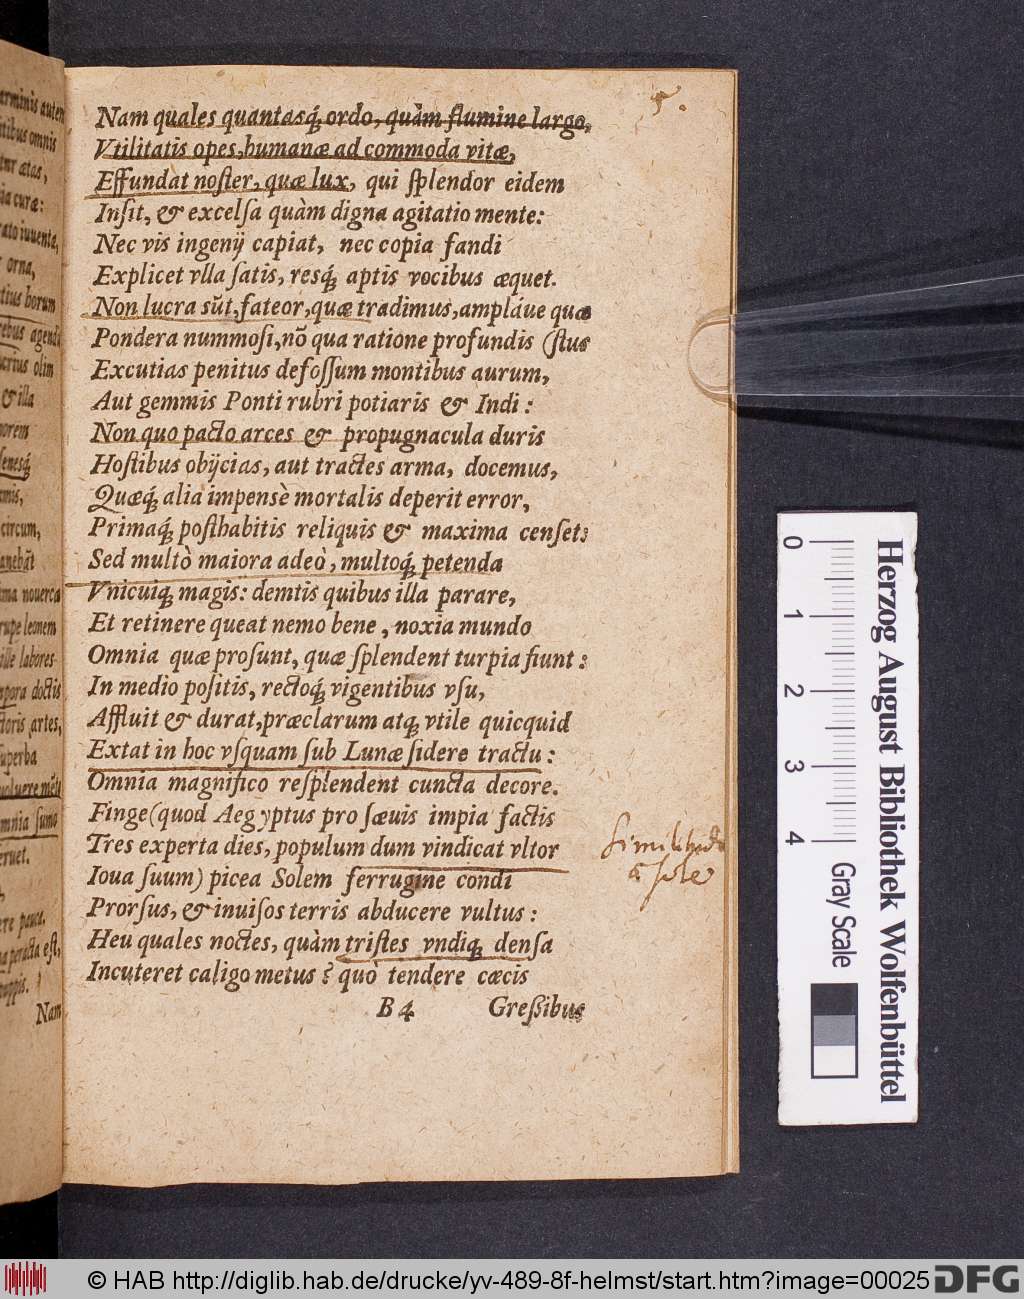 5.
Nam quales quantasq́; ordo, quàm flumine largo,
Vtilitatis opes, humanæ ad commoda vitæ,
Effundat noſter, quæ lux, qui ſplendor eidem
Inſit, & excelſa quàm digna agitatio mente:
Nec vis ingenij capiat, nec copia fandi
Explicet vlla ſatis, resq́; aptis vocibus æquet.
Non lucra sũt, fateor, quæ tradimus, ampláue quæ
Pondera nummoſi, nõ qua ratione profundis (ſtus
Excutias penitus defoſſum montibus aurum,
Aut gemmis Ponti rubri potiaris & Indi:
Non quo pacto arces & propugnacula duris
Hoſtibus obijcias, aut tractes arma, docemus,
Quæq́; alia impensè mortalis deperit error,
Primaq́; poſthabitis reliquis & maxima cenſet:
Sed multò maiora adeò, multoq́; petenda
Vnicuiq; magis: demtis quibus illa parare,
Et retinere queat nemo bene, noxia mundo
Omnia quæ proſunt, quæ ſplendent turpia fiunt:
In medio poſitis, rectoq́; vigentibus vſu,
Affluit & durat, præclarum atq; vtile quicquid
Extat in hoc vſquam ſub Lunæ ſidere tractu:
Omnia magnifico reſplendent cuncta decore.
Finge (quod Aegyptus pro ſæuis impia factis
Tres experta dies, populum dum vindicat vltor
Ioua ſuum) picea Solem ferrugine condi
Prorſus, & inuiſos terris abducere vultus:
Heu quales noctes, quàm triſtes vndiq; denſa
Incuteret caligo metus? quò tendere cæcis
B 4 Greßibus
Similitudo
à sole
arminis autem
omnis
ætas,
curæ:
iuuenta,
orna,
horum
agendi
olim
& illa
circum,
nouerca
rupe leonem
ille labores
doctis
artes,
ſuperba
omnia ſumo
pauca.
peracta eſt,
Nam
0
1
2
3
4
Gray Scale
Herzog August Bibliothek Wolfenbüttel
© HAB http://diglib.hab.de/drucke/yv-489-8f-helmst/start.htm?image=00025
DFG